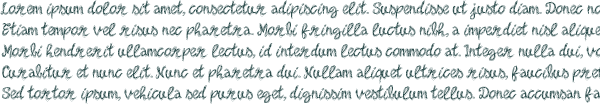 Lorem ipsum dolor sit amet, consectetur adipiscing elit. Suspendisse ut justo diam. Donec
Etiam tempor vel risus nec pharetra. Morbi fringilla luctus nibh, a imperdiet nisl
Morbi hendrerit ullamcorper lectus, id interdum lectus commodo at. Integer nulla dui,
Curabitur et nunc elit. Nunc et pharetra dui. Nullam aliquet ultrices risus, faucibus
Sed tortor ipsum, vehicula sed purus eget, dignissim vestibulum tellus. Donec accumsan